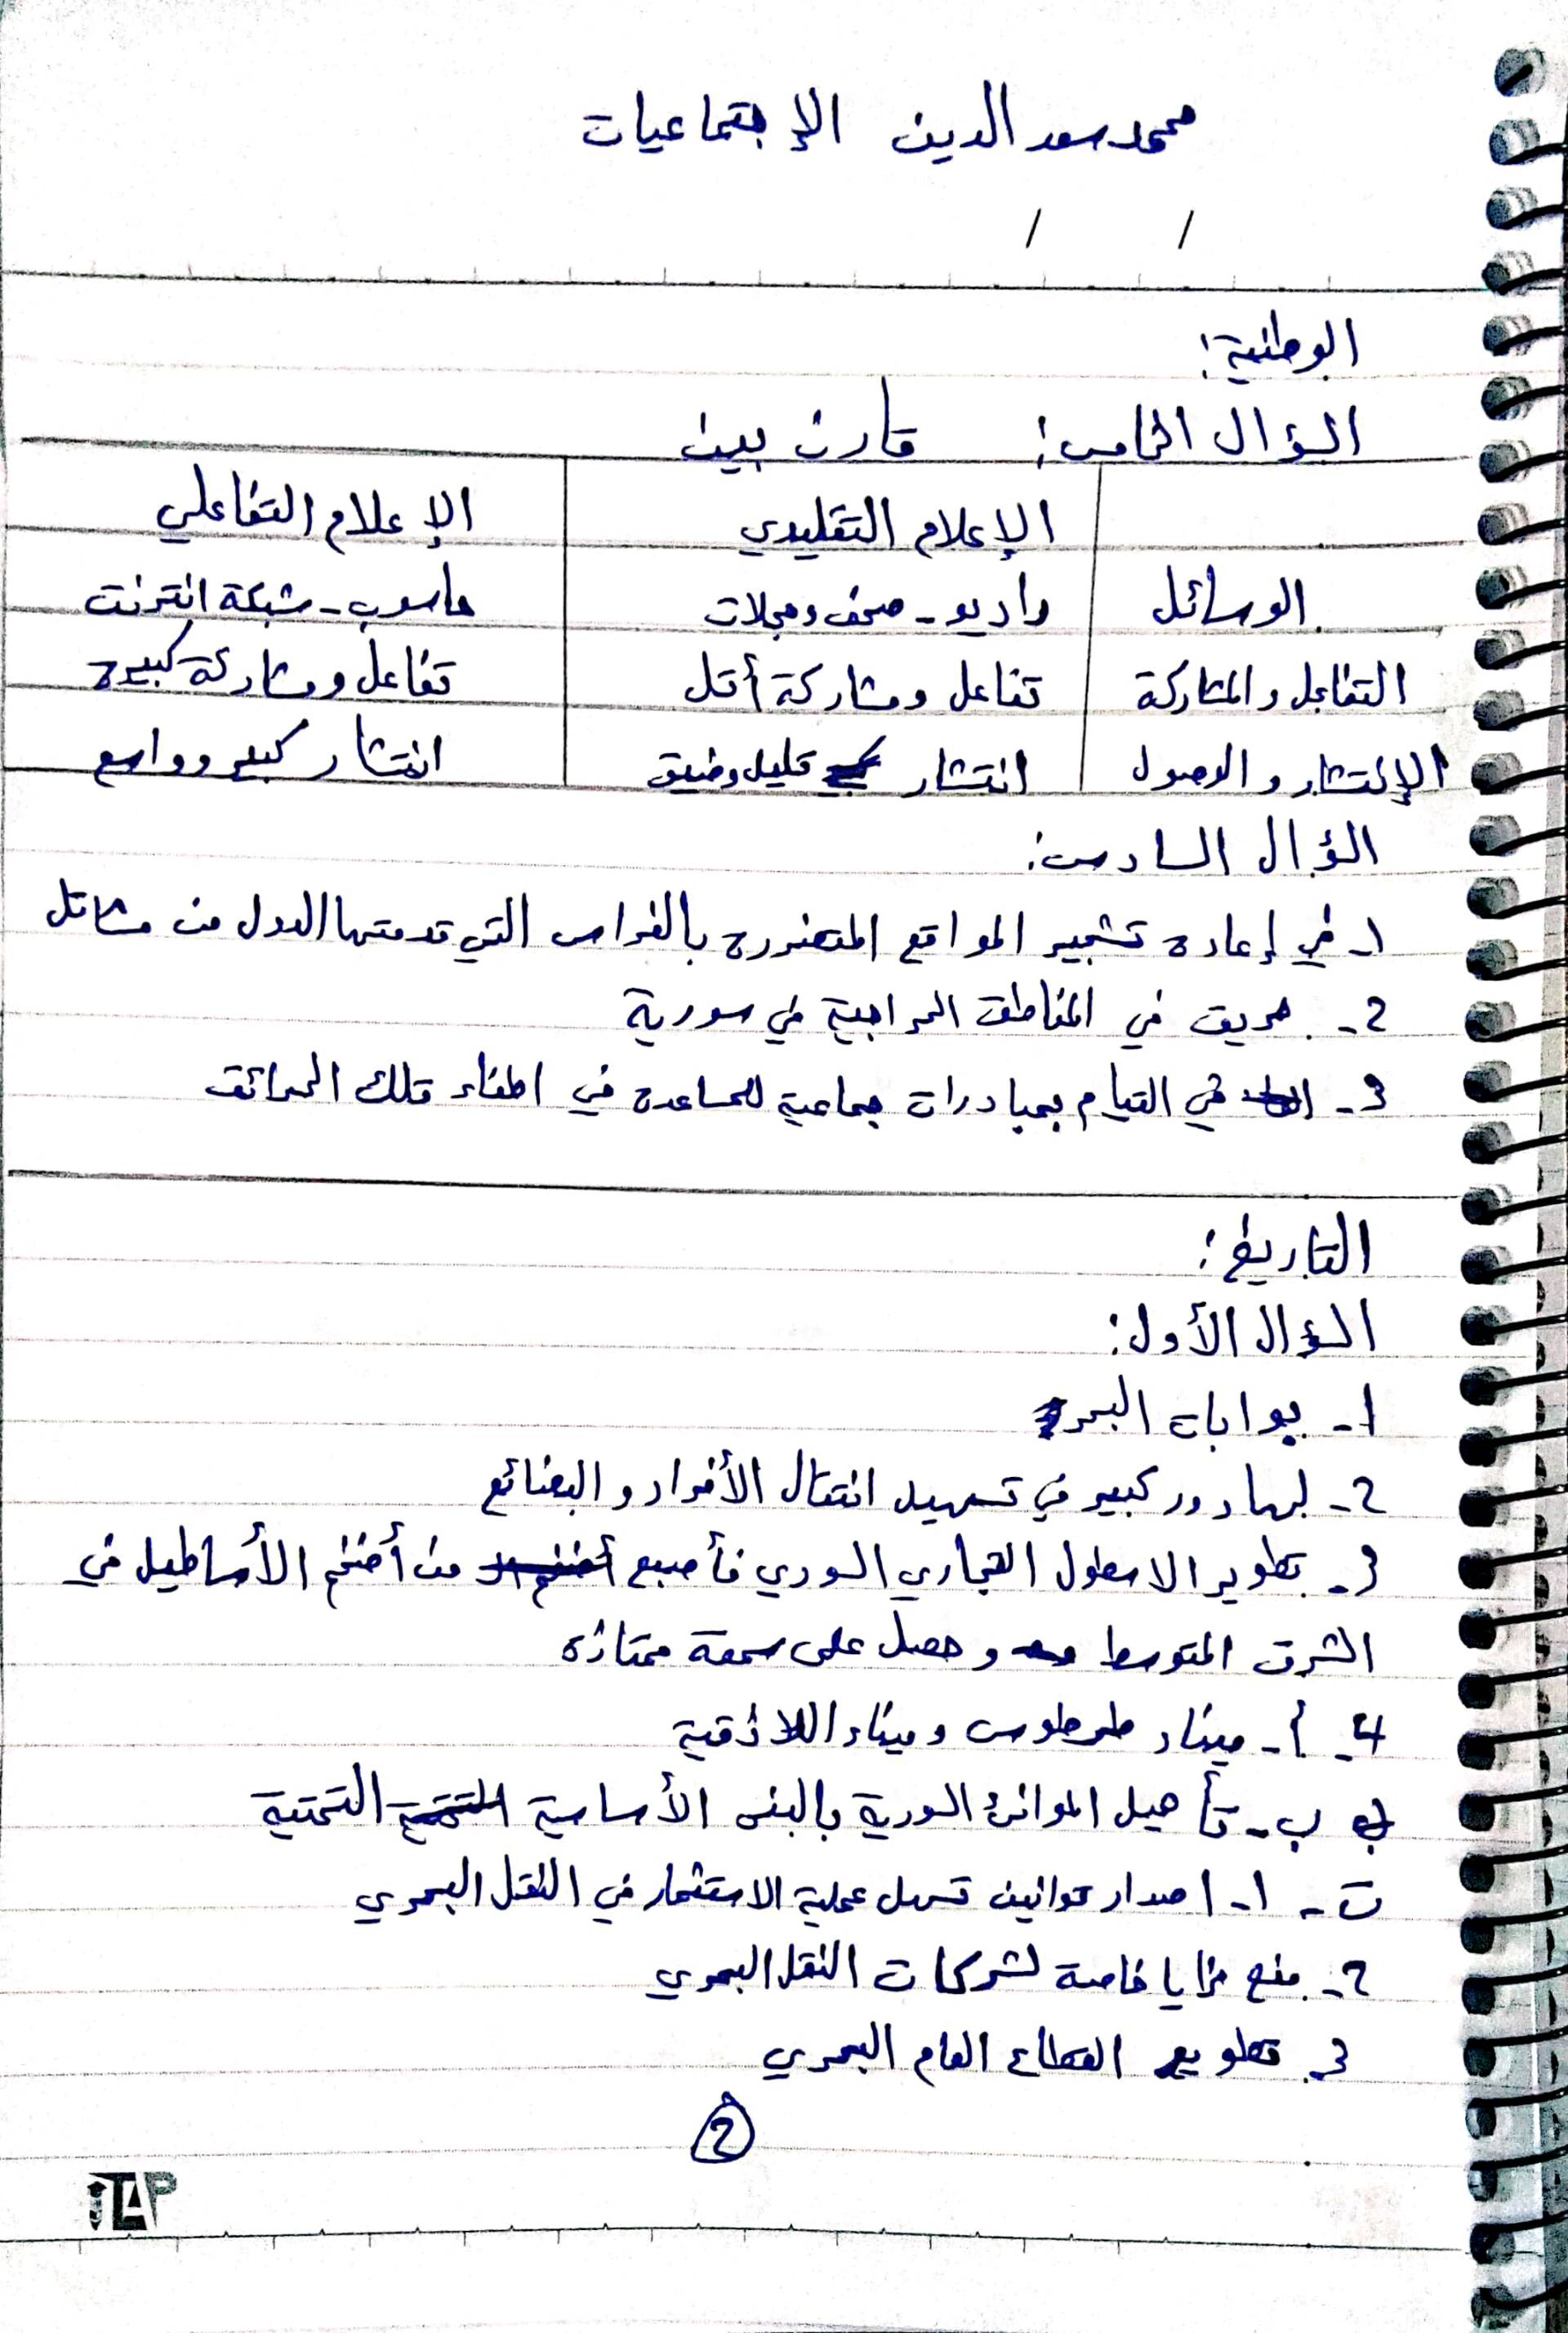 محمد سعد الدين الإجتماعيات
/ /
الوطنية:
السؤال الخامس: قارن بين
الإعلام التقليدي الإعلام التفاعلي
الوسائل راديو - صحف ومجلات حاسوب - شبكة انترنت
التفاعل والمشاركة تفاعل ومشاركة أقل تفاعل ومشاركة كبيرة
الإنتشار والوصول انتشار قليل وضيق انتشار كبير وواسع
السؤال السادس:
1- في إعادة تشجير المواقع المتضررة بالغراس التي قدمتها الدول من مشاتل
2- حريق في المناطق الحراجية في سورية
3- في القيام بمبادرات جماعية للمساعدة في اطفاء تلك الحرائق
التاريخ:
السؤال الأول:
1- بوابات البحر
2- لها دور كبير في تسهيل انتقال الأفراد والبضائع
3- تطوير الاسطول التجاري السوري فأصبح من أضخم الأساطيل في
الشرق المتوسط وحصل على سمعة ممتازة
4- أ- ميناء طرطوس وميناء اللاذقية
ب- تأهيل الموانئ السورية بالبنى الأساسية التحتية
ت- 1- اصدار قوانين تسهل عملية الاستثمار في النقل البحري
2- منح مزايا خاصة لشركات النقل البحري
3- تطوير القطاع العام البحري
2
TAP